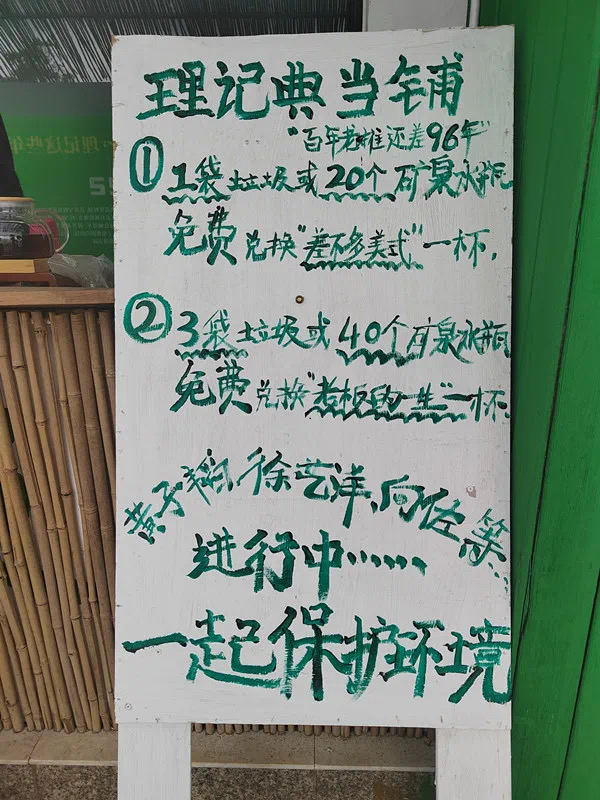 理记典当铺
"百年老雄还差96年"
① 1袋垃圾或20个矿泉水瓶
免费兑换"差不多美式"一杯,
② 3袋垃圾或40个矿泉水瓶
免费兑换"老板的一生"一杯.
黄子韬、徐艺洋、向佐等..
进行中……
一起保护环境